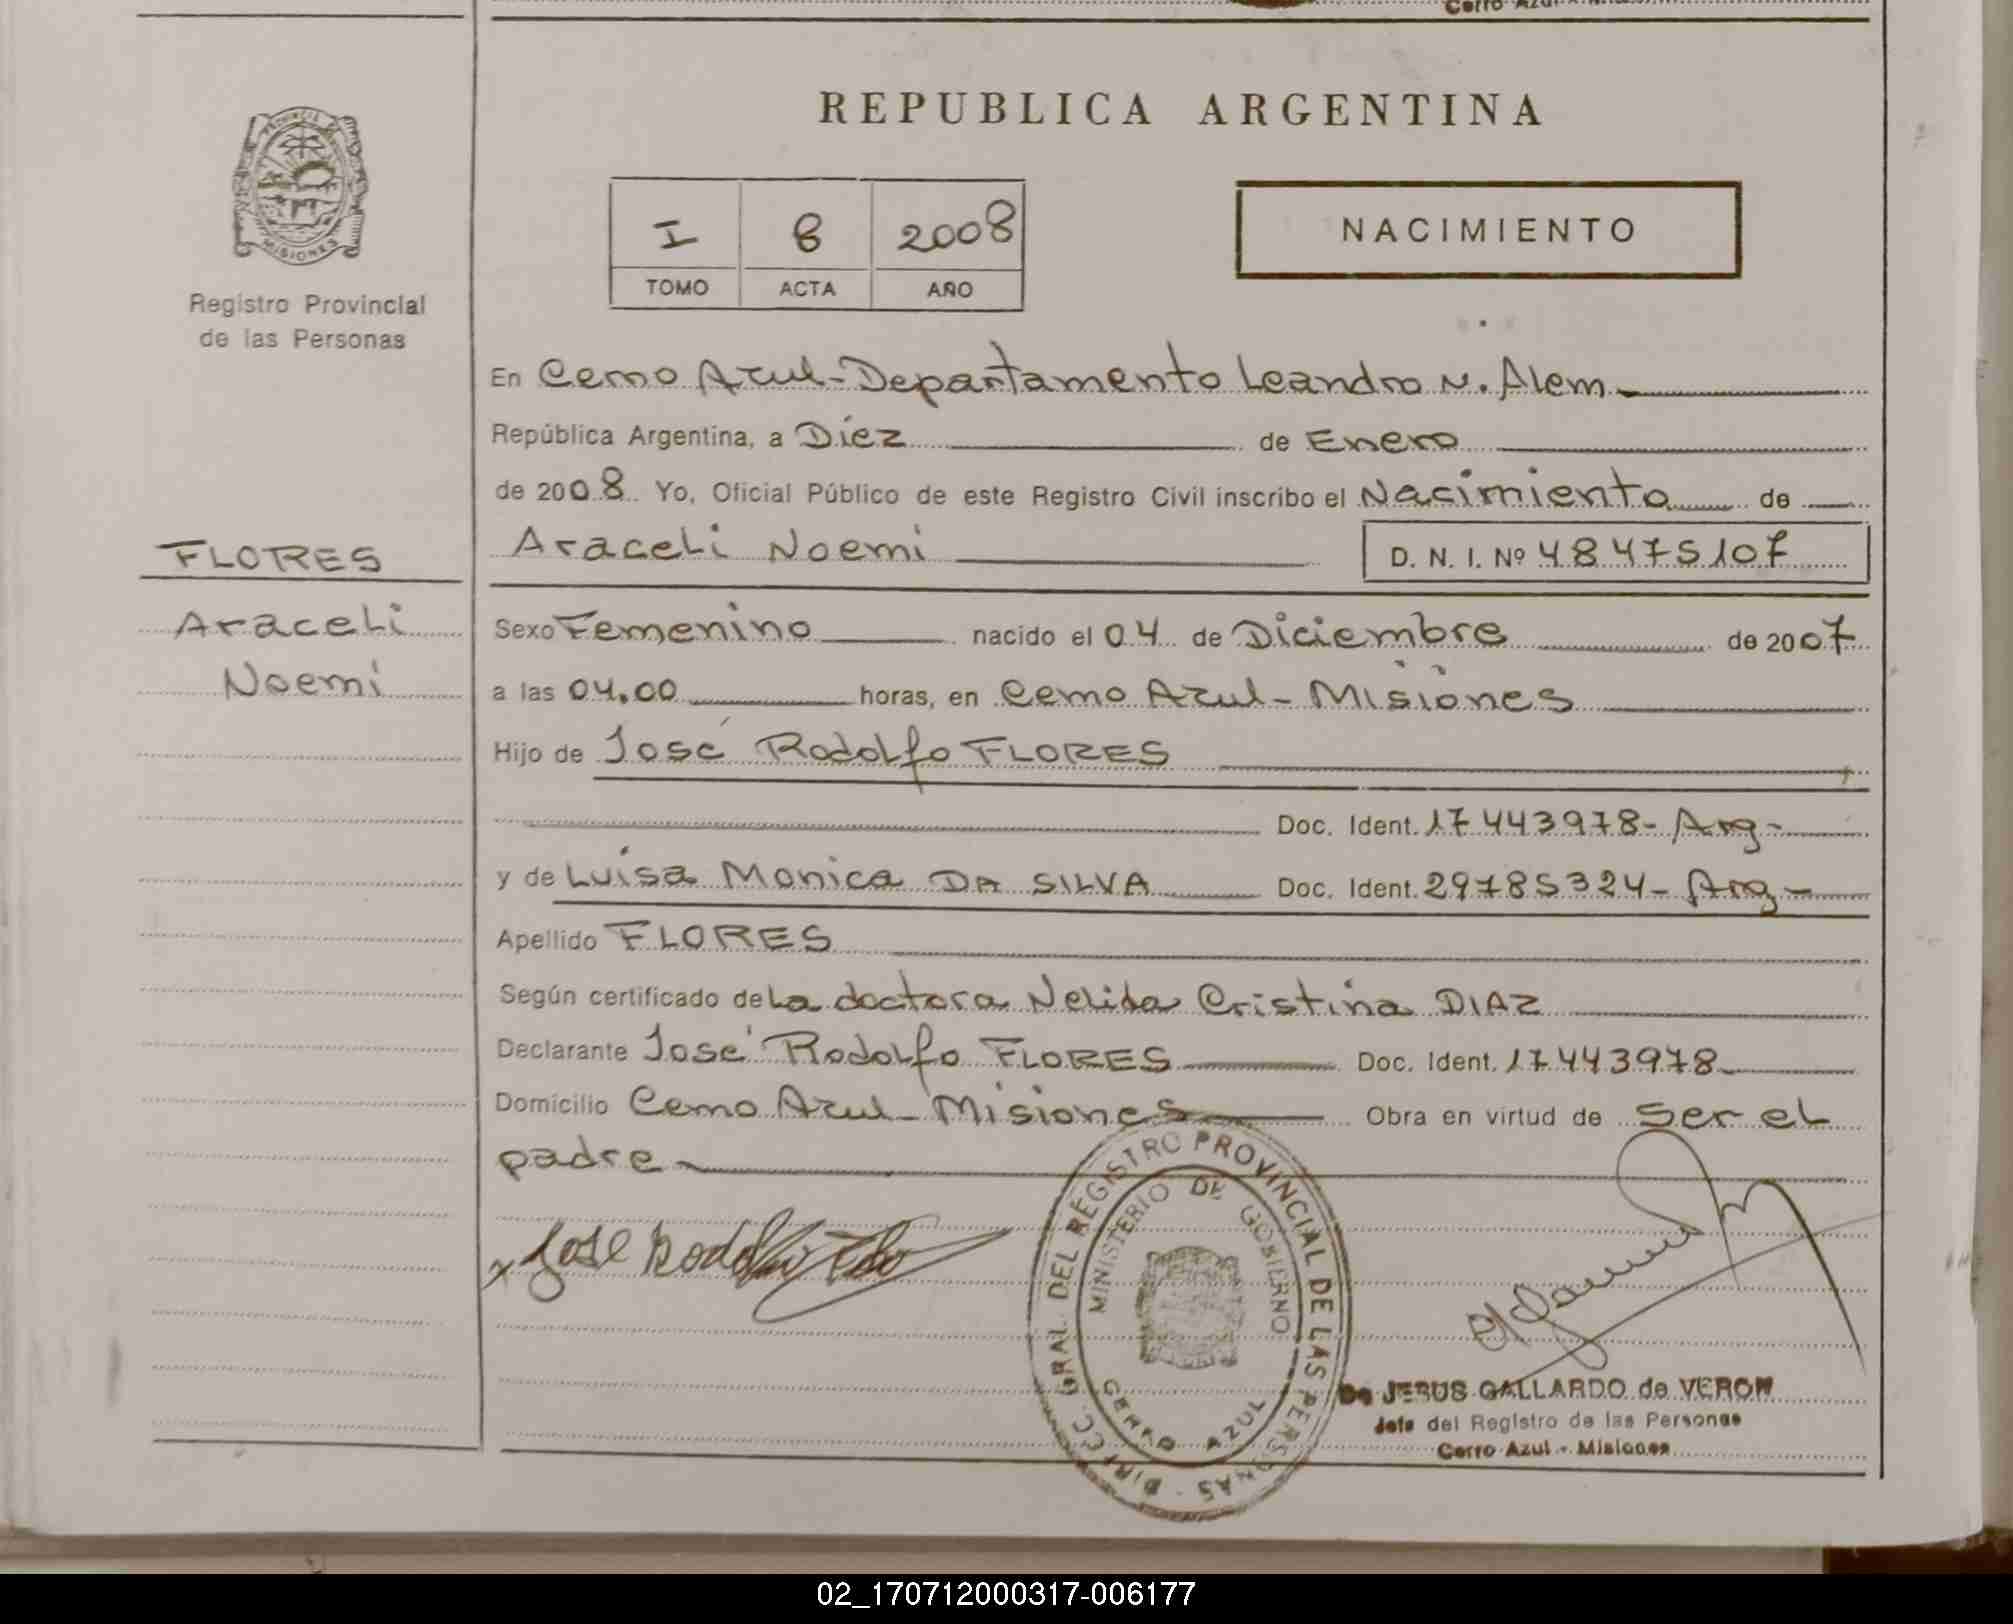 Cerro Azul - Misiones
REPUBLICA ARGENTINA
PROVINCIA DE
MISIONES
Registro Provincial
de las Personas
I 8 2008
TOMO ACTA AÑO
NACIMIENTO
En Cerro Azul - Departamento Leandro N. Alem
República Argentina, a Diez de Enero
de 2008. Yo, Oficial Público de este Registro Civil inscribo el Nacimiento de
Araceli Noemi D. N. I. Nº 48475107
FLORES
Araceli
Noemi
Sexo Femenino nacido el 04 de Diciembre de 2007
a las 04.00 horas, en Cerro Azul - Misiones
Hijo de José Rodolfo FLORES
Doc. Ident. 17443978 - Arg -
y de Luisa Monica DA SILVA Doc. Ident. 29785324 - Arg -
Apellido FLORES
Según certificado de La doctora Nelida Cristina DIAZ
Declarante José Rodolfo FLORES Doc. Ident. 17443978
Domicilio Cerro Azul - Misiones Obra en virtud de ser el
padre
x José Rodolfo
DIRECC. GRAL. DEL REGISTRO PROVINCIAL DE LAS PERSONAS
MINISTERIO DE GOBIERNO
CERRO AZUL
De JESUS GALLARDO de VERON
Jefe del Registro de las Personas
Cerro Azul - Misiones
02_170712000317-006177